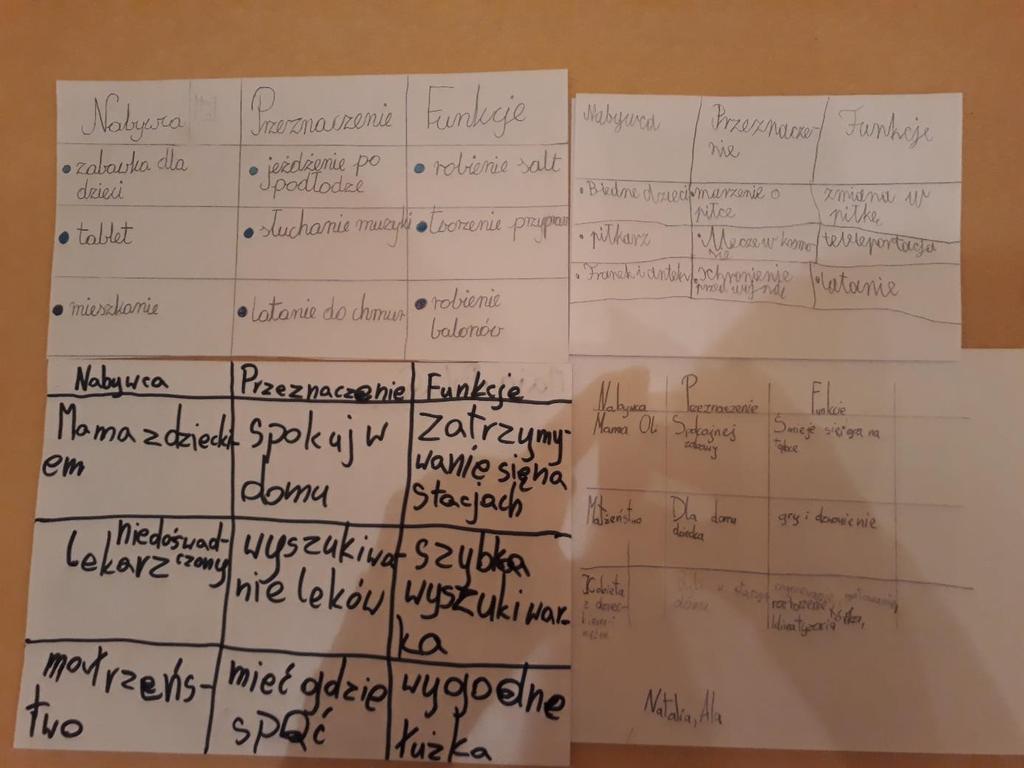 Nabywca Przeznaczenie Funkcje
• zabawka dla
dzieci
• jeżdżenie po
podłodze
• robienie salt
• tablet
• słuchanie muzyki
• tworzenie przypraw
• mieszkanie
• latanie do chmur
• robienie
balonów
Nabywca Przeznacze-
nie
Funkcje
• Biedne dzieci
• marzenie o
piłce
zmiana w
piłkę
• piłkarz
• Mecze w
teleportacja
• Franek i
• schronienie
• latanie
Nabywca Przeznaczenie Funkcje
Mama z dzieckі-
em
spokuj w
domu
zatrzymy-
wanię sięna
stacjach
niedoświad-
lekarz czony
wyszukiwa-
nie leków
szybka
wyszukiwar-
ka
małrzeńs-
two
mieć gdzię
spać
wygodne
łużka
Nabywca Przeznaczenie Funkcie
Mama Oli
Spokojnej
zabawy
Śmieje się i gra na
Małżeństwo
Dla domu
dziecka
gry i dzwonienie
Kobieta
z
domu
klimatyzacja
Natalia, Ala